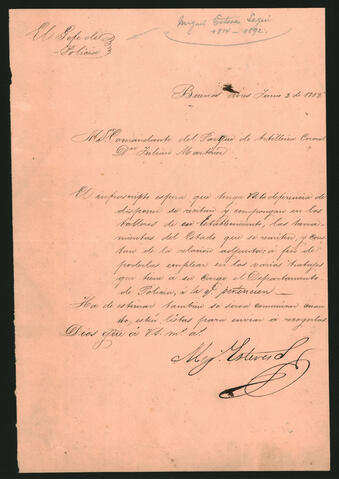 El Gefe de
Policia
Miguel Esteves Seguí
1814 – 1892.
Buenos Aires Junio 2 de
Al Sr Comandante del Parque de Artilleria Coronel
Dn Julian Martinez
El infrascripto espera que tenga VS. la deferencia de
disponer se revisen y compongan en los
talleres de su Establecimiento, las
del Estado que se remiten, y cons-
tan de la relacion adjunta; a fin de
poderlas emplear en los varios trabajos
que tiene a su cargo el Departamento
de Policia, a la q.e pertenecen
Ha de estimar tambien se sirva comunicar cuan-
do, esten listas para enviar a recogerlas
Dios gue a VS. ms as.
Mig. Esteves S.